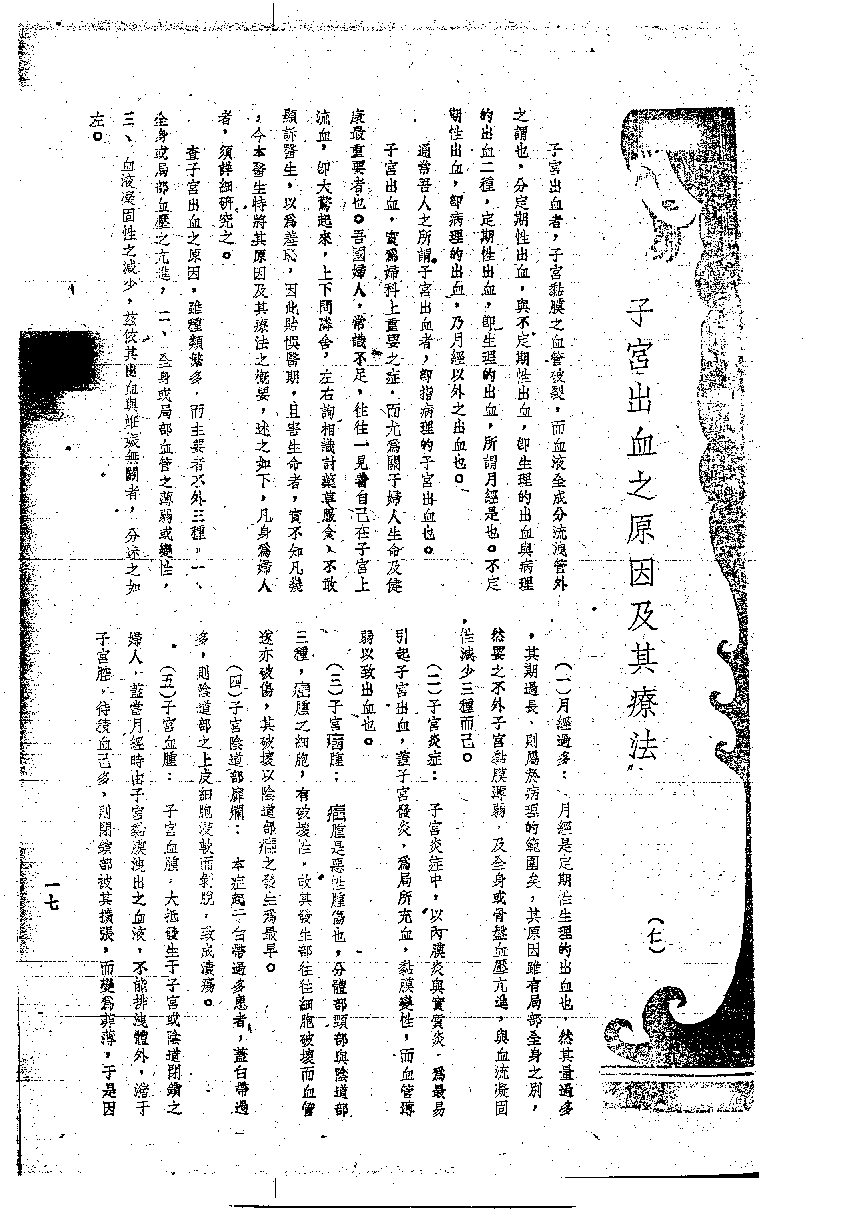 子宮出血之原因及其療法
(仁)
子宮出血者，子宮黏膜之血管破裂，而血液全成分流洩管外
之謂也，分定期性出血，與不定期性出血，卽生理的出血與病理
的出血二種，定期性出血，卽生理的出血，所謂月經是也。不定
期性出血，卽病理的出血，乃月經以外之出血也。
通常吾人之所謂子宮出血者，卽指病理的子宮出血也。
子宮出血，實爲婦科上重要之症，而尤爲關于婦人生命及健
康最重要者也。吾國婦人，常識不足，往往一見着自己在子宮上
流血，卽大驚起來，上下問隣舍，左右詢相識討藥草服食、不敢
顯訴醫生，以爲羞恥，因此貽悞醫期，且害生命者，實不知凡幾
，今本醫生特將其原因及其療法之概要，述之如下，凡身爲婦人
者，須詳細研究之。
查子宮出血之原因，雖種類繁多，而主要者不外三種，一、
全身或局部血壓之亢進，二、全身或局部血管之薄弱或變性，
三、血液凝固性之減少，茲依其出血與姙娠無關者，分述之如
左。
(一)月經過多：　月經是定期性生理的出血也，然其量過多
，其期過長、則屬於病理的範圍矣，其原因雖有局部全身之別，
然要之不外子宮黏膜薄弱，及全身或骨盤血壓亢進，與血流凝固
性減少三種而已。
(二)子宮炎症：　子宮炎症中，以內膜炎與實質炎，爲最易
引起子宮出血，蓋子宮發炎，爲局所充血，黏膜變性，而血管薄
弱以致出血也。
(三)子宮癌腫；　癌腫是惡性腫傷也，分體部頸部與陰道部
三種，癌腫之細胞，有破壞性，故其發生部往往細胞破壞而血管
遂亦破傷，其破壞以陰道部癌之發生爲最早。
(四)子宮陰道部靡爛：　本症起于白帶過多患者，蓋白帶過
多，則陰道部之上皮細胞浸軟而剝脫，致成潰瘍。
(五)子宮血腫：　子宮血腫，大抵發生于子宮或陰道閉鎖之
婦人，蓋當月經時由子宮黏膜洩出之血液，不能排洩體外，瀦于
子宮腔，待積血已多，則閉鎖部被其擴張，而變爲菲薄，于是因
一七